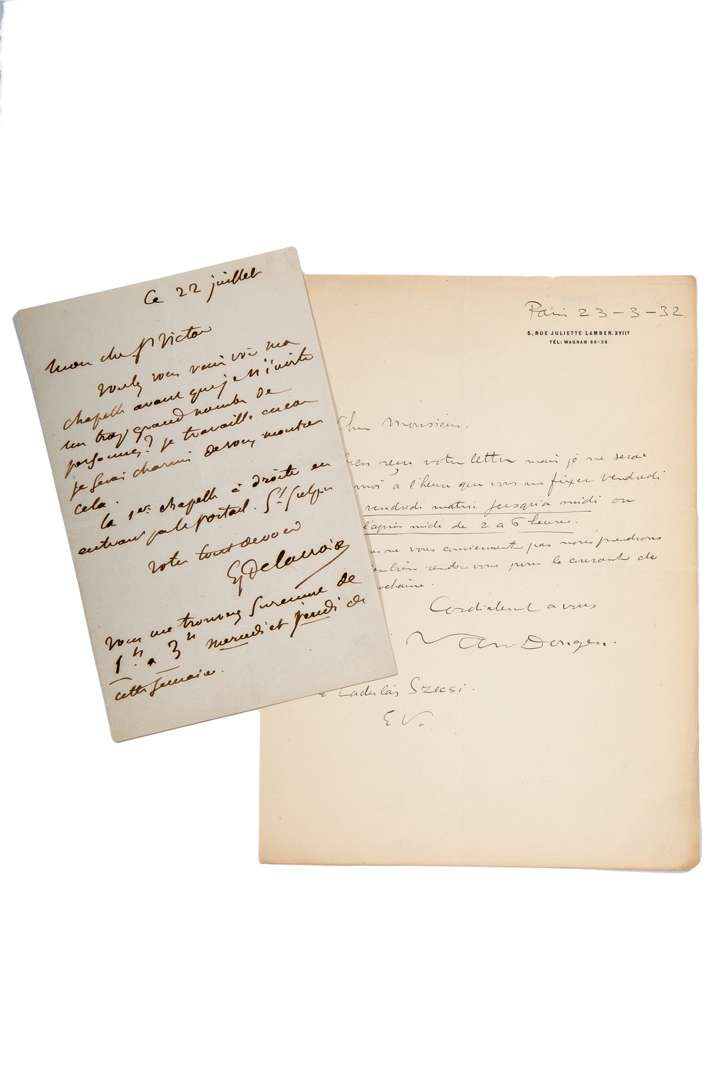 Ce 22 juillet
Mon cher St Victor
Voulez vous venir voir ma
chapelle avant que j'y invite
un trop grand nombre de
personnes? je travaille encore
je serai charmé de vous montrer
cela.
la 1ere chapelle à droite en
entrant par le portail. St Sulpice
votre tout dévoué
EugDelacroix
vous me trouverez surement de
1h à 3h mercredi et jeudi de
cette semaine.
Paris 23-3-32
5, RUE JULIETTE LAMBER. XVIIe
TÉL: WAGRAM
Cher Monsieur.
reçu votre lettre mais je ne serai
moi à l'heure que vous me fixez vendredi
vendredi matin jusqu'à midi ou
l'après midi de 2 à 6 heures.
ne vous conviennent pas nous prendrons
rendez vous pour le courant de
prochaine.
Cordialement à vous
Van Dongen.
Ladislas Szecsi.
E. V.